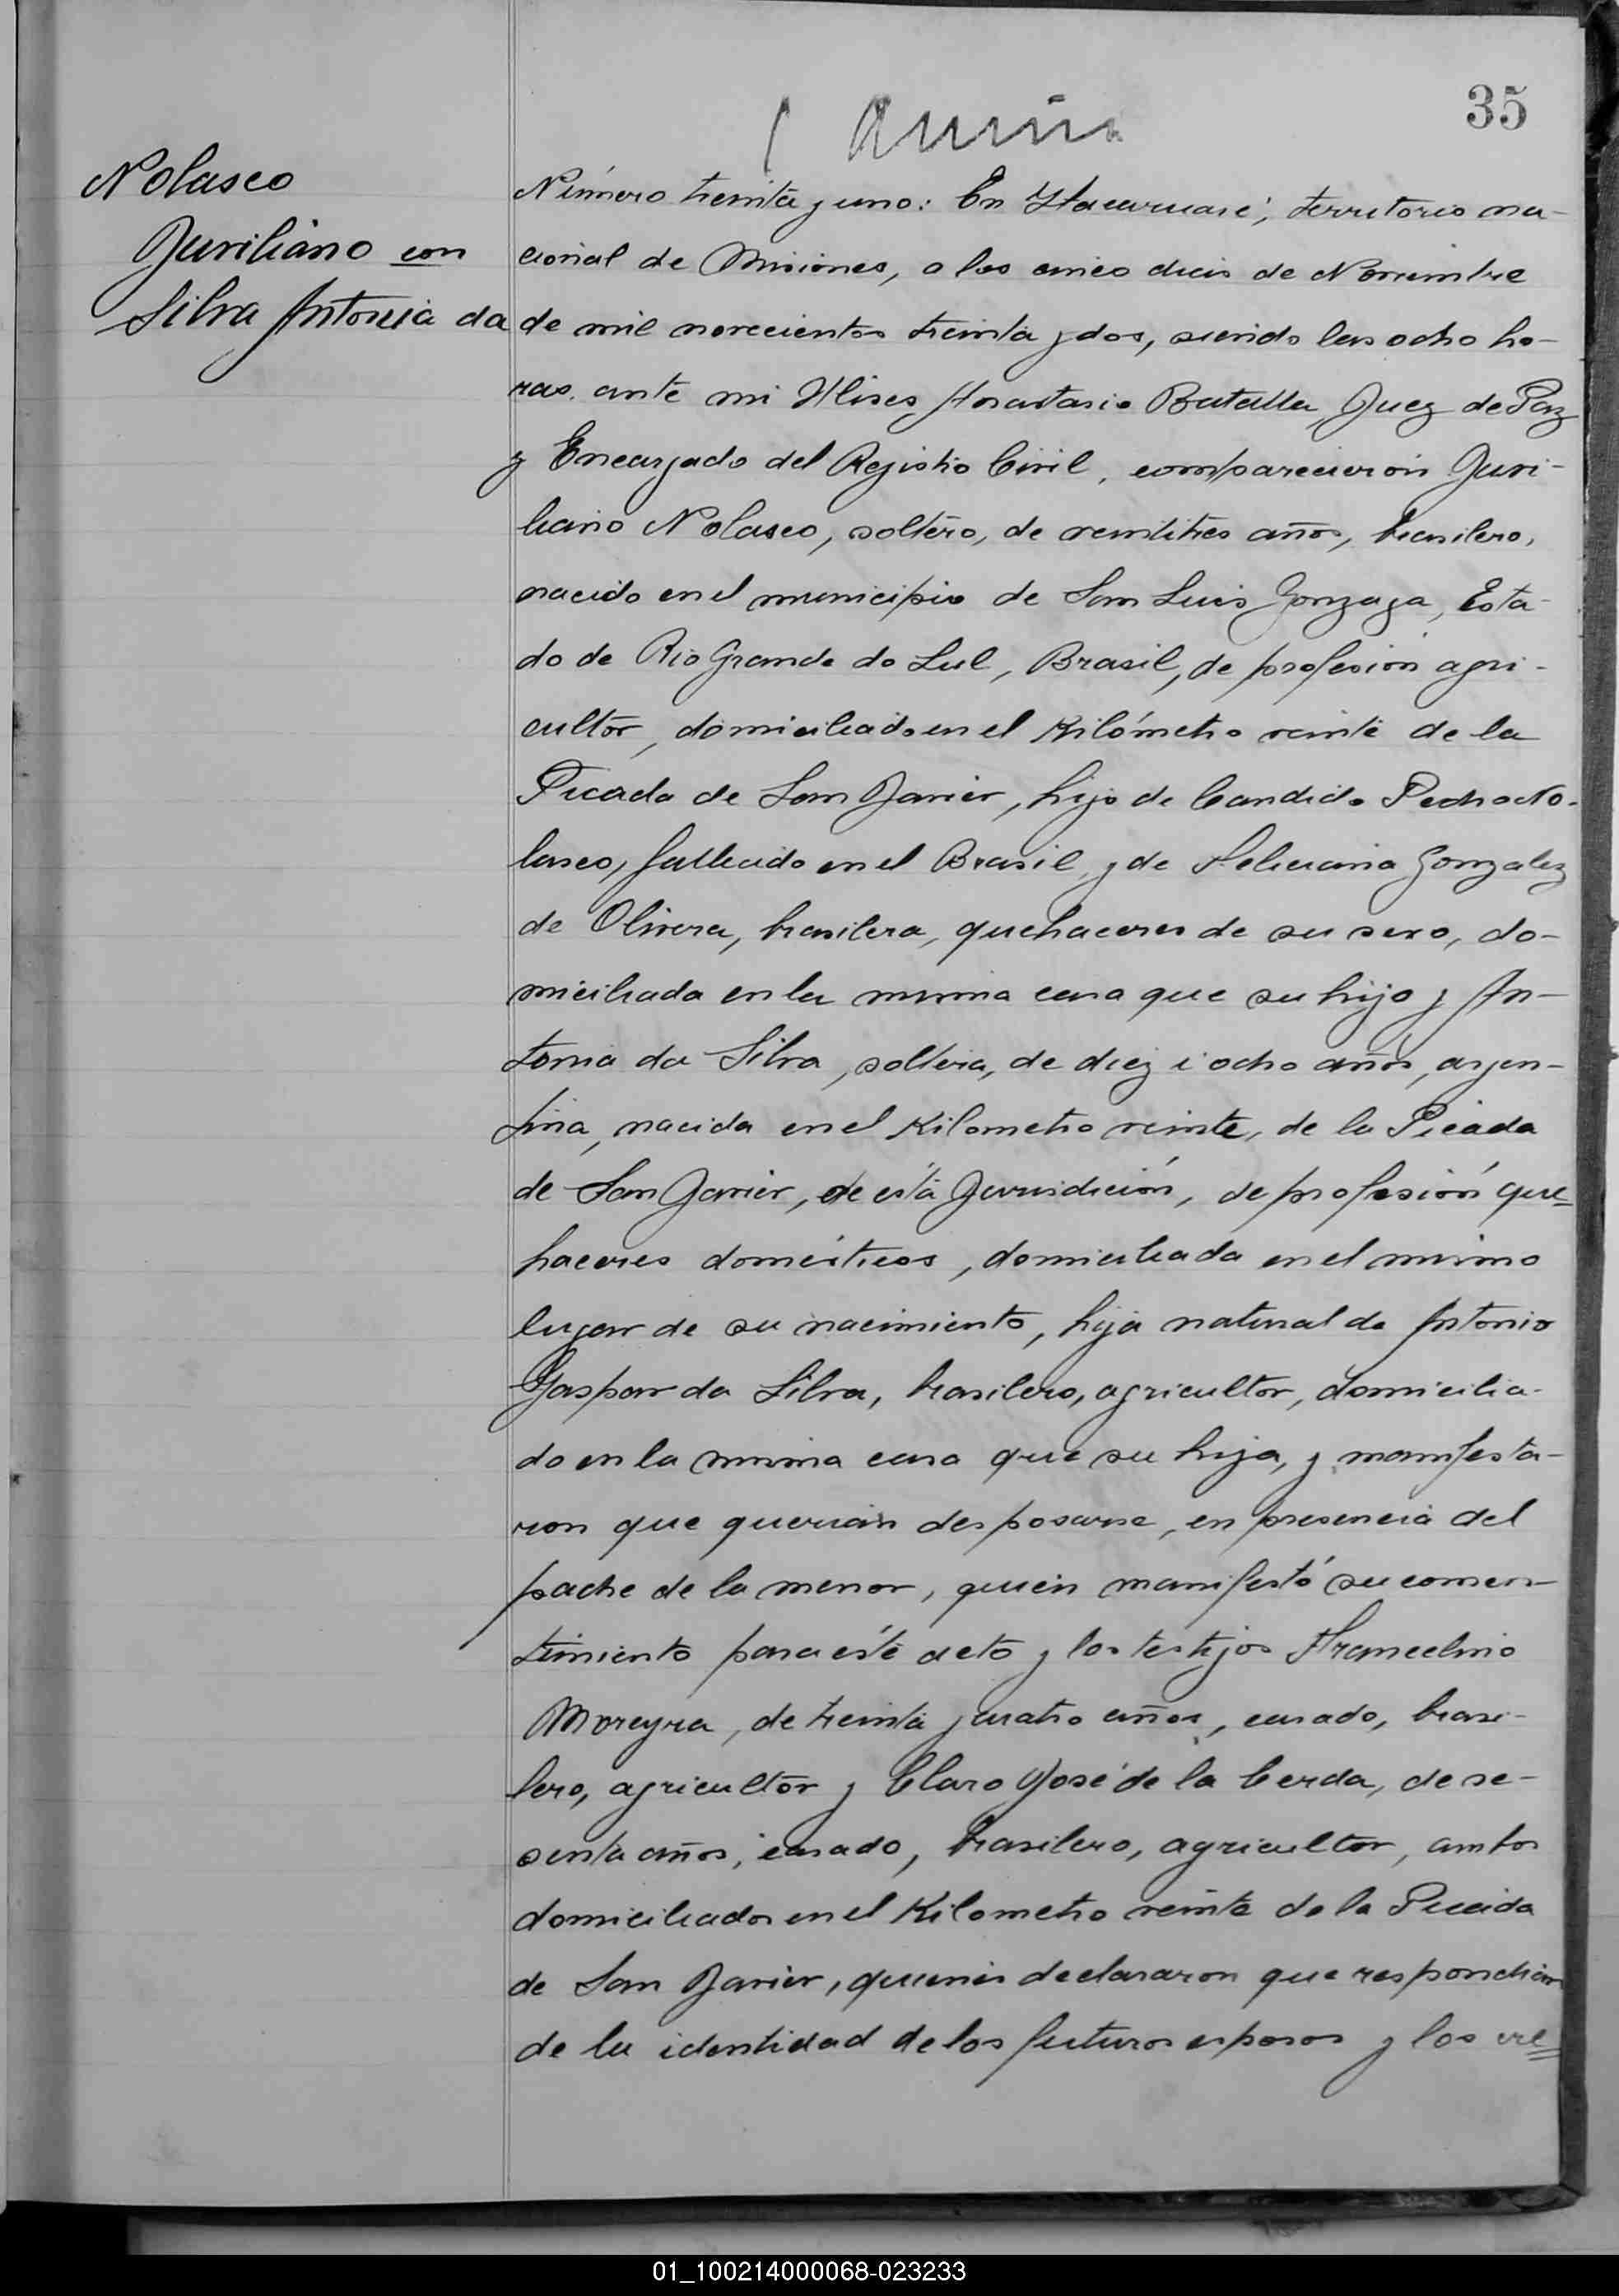 35
Nolasco
Juviliano con
Silva Antonia da
Número treinta y uno: En Itacaruaré, territorio na-
cional de Misiones, a los cinco dias de Noviembre
de mil novecientos treinta y dos, siendo las ocho ho-
ras. ante mi Ulises Anastasio Batalla, Juez de Paz
y Encargado del Registro Civil, comparecieron Juvi-
liano Nolasco, soltero, de veintitres años, brasilero,
nacido en el municipio de San Luis Gonzaga, Esta-
do de Rio Grande do Sul, Brasil, de profesión agri-
cultor, domiciliado en el Kilómetro veinte de la
Picada de San Javier, hijo de Candido Pedro No-
lasco, fallecido en el Brasil, y de Feliciana Gonzalez
de Olivera, brasilera, quehaceres de su sexo, do-
miciliada en la misma casa que su hijo y An-
tonia da Silva, soltera, de diez i ocho años, argen-
tina, nacida en el Kilometro veinte, de la Picada
de San Javier, de esta Jurisdición, de profesión que=
haceres domésticos, domiciliada en el mismo
lugar de su nacimiento, hija natural de Antonio
Gaspar da Silva, brasilero, agricultor, domicilia-
do en la misma casa que su hija, y manifesta-
ron que querian desposarse, en presencia del
padre de la menor, quien manifestó su consen-
timiento para este acto y los testijos Francelino
Moreyra, de treinta y cuatro años, casado, brasi-
lero, agricultor y Claro José de la Cerda, de se-
senta años, casado, brasilero, agricultor, ambos
domiciliados en el Kilometro veinte de la Picada
de San Javier, quienes declararon que respondian
de la identidad de los futuros esposos y los cre=
01_100214000068-023233